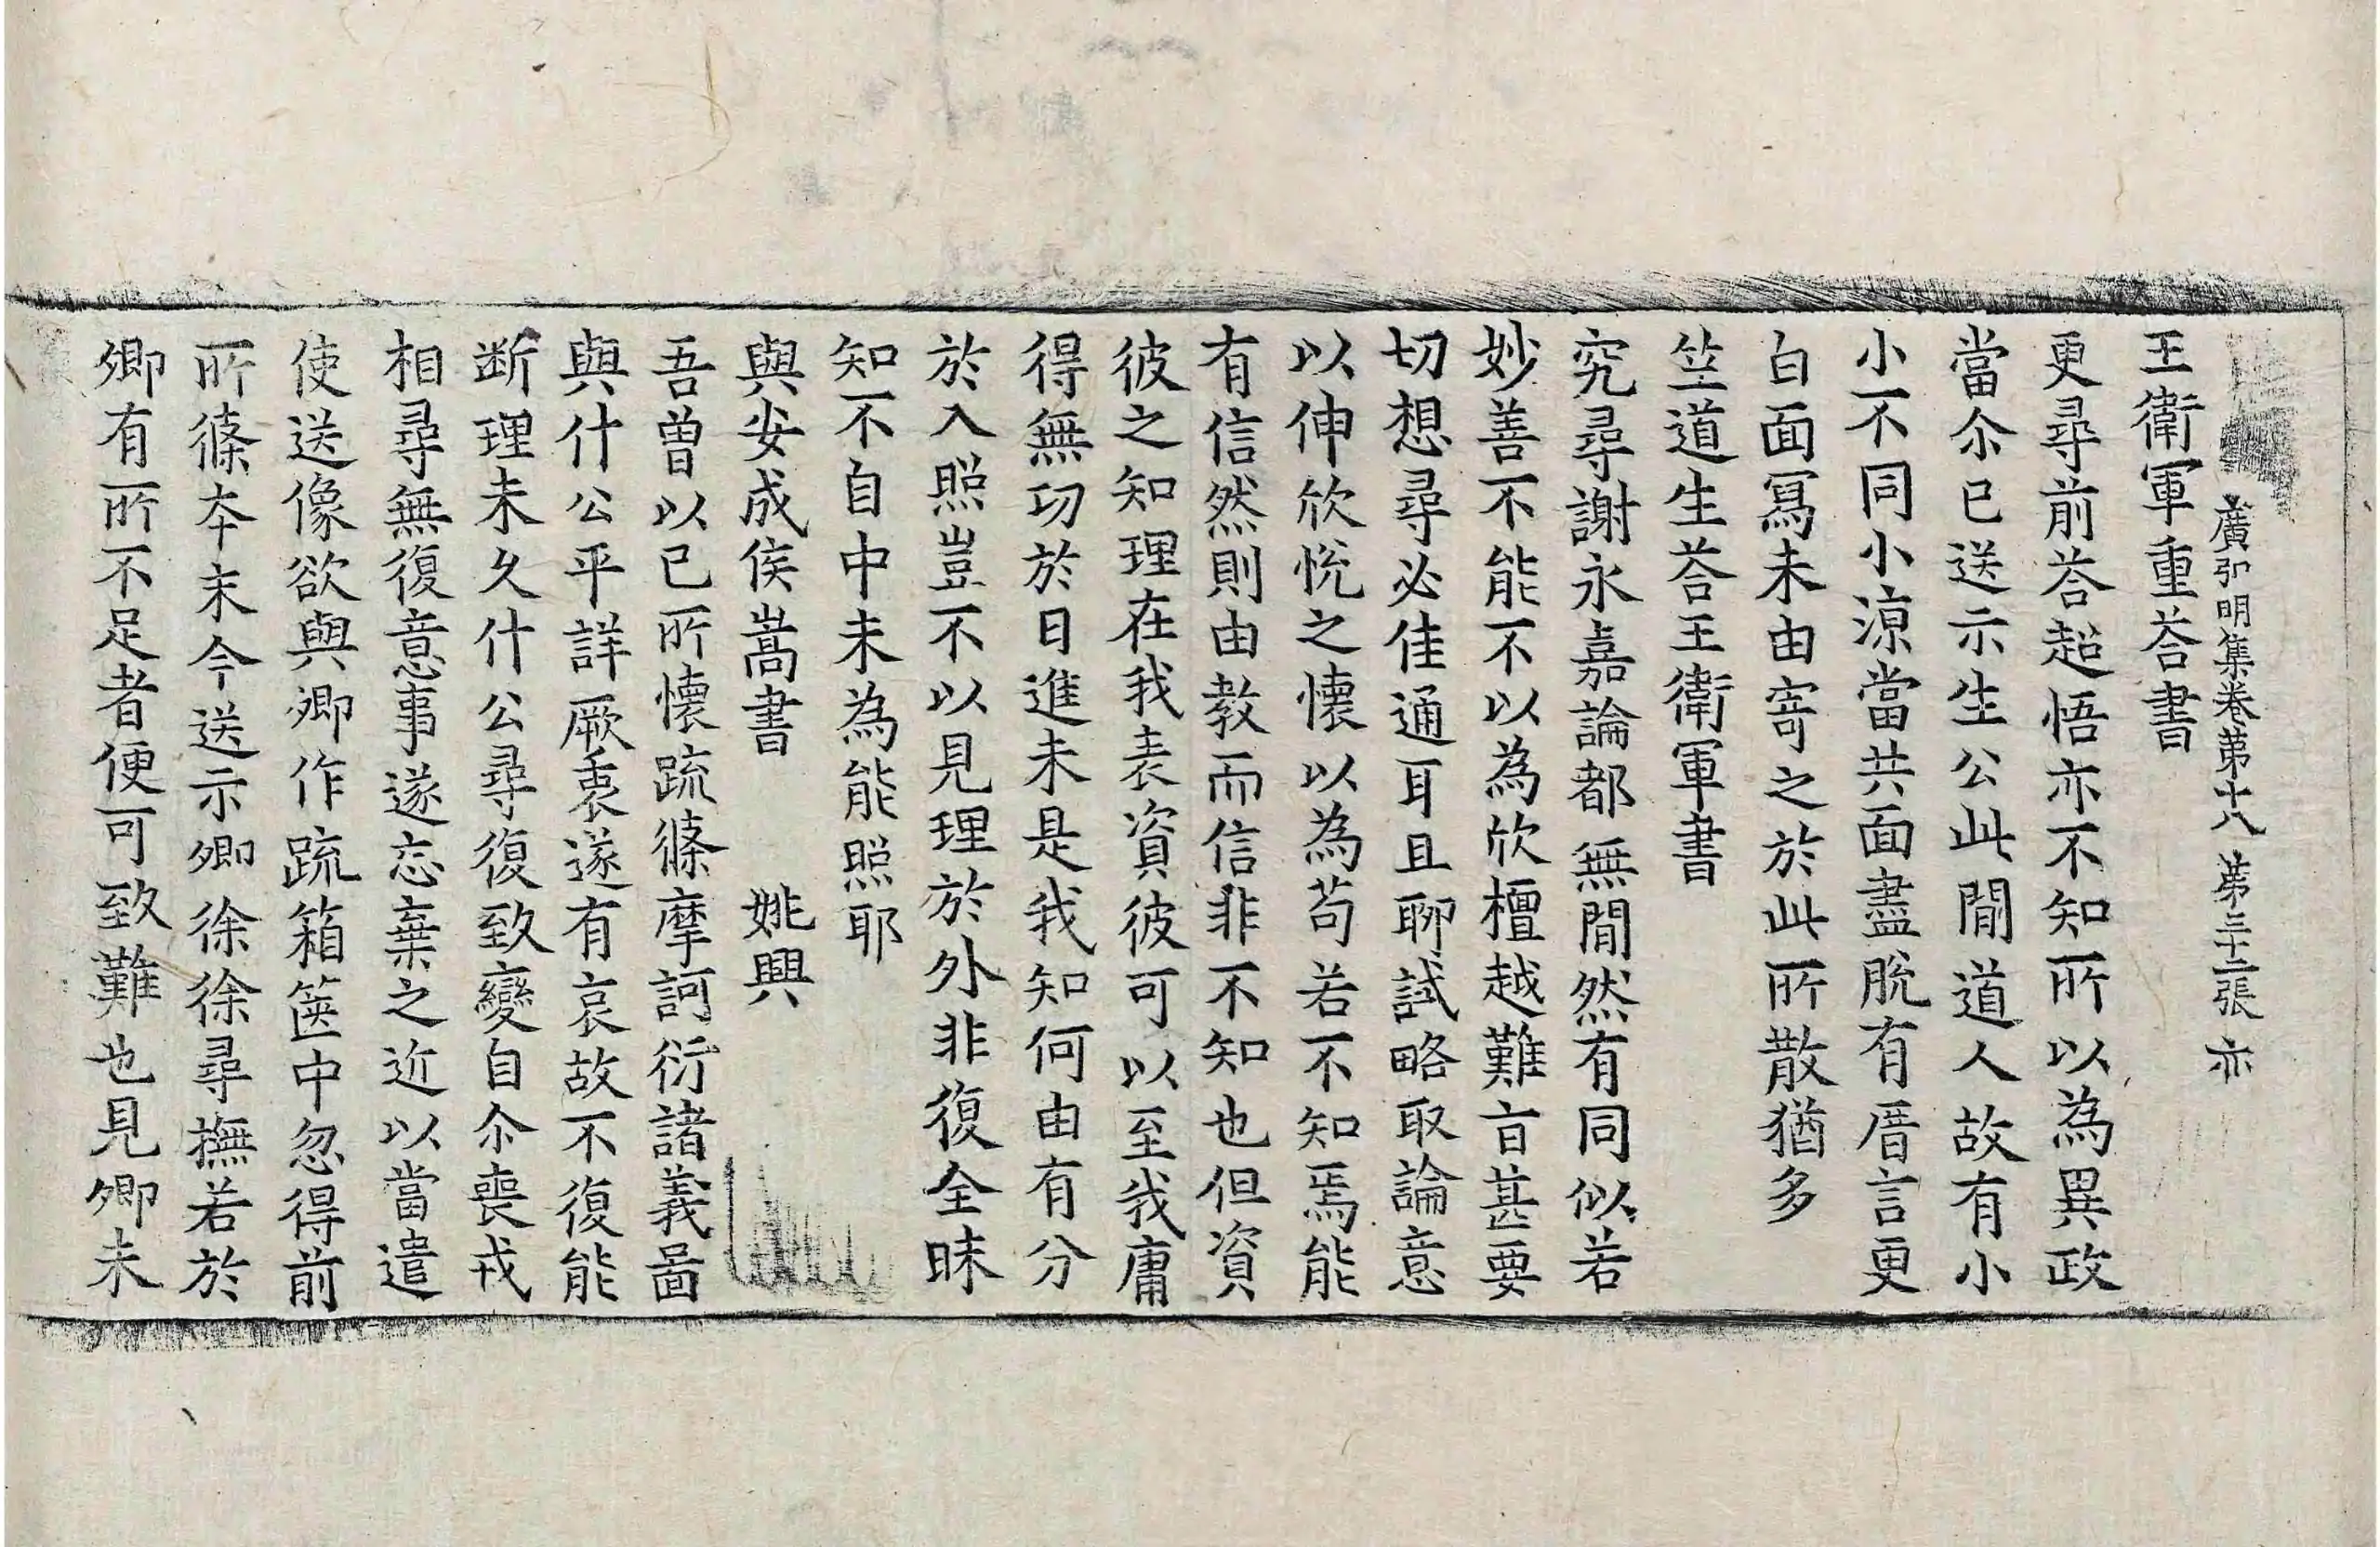 廣弘明集卷第十八 第三十二張 亦
王衛軍重荅書
更尋前荅超悟亦不知所以為異政
當尒已送示生公此閒道人故有小
小不同小涼當共面盡脫有厝言更
白面寫未由寄之於此所散猶多
竺道生荅王衛軍書
究尋謝永嘉論都無閒然有同似若
妙善不能不以為欣檀越難旨甚要
切想尋必佳通耳且聊試略取論意
以伸欣悅之懷以為苟若不知焉能
有信然則由教而信非不知也但資
彼之知理在我表資彼可以至我庸
得無功於日進未是我知何由有分
於入照豈不以見理於外非復全昧
知不自中未為能照耶
與安成侯嵩書 姚興
吾曾以己所懷疏條摩訶衍諸義啚
與什公平詳厥衷遂有哀故不復能
断理未久什公尋復致變自尒喪戎
相尋無復意事遂忘棄之近以當遣
使送像欲與卿作疏箱篋中忽得前
所條本末今送示卿徐徐尋撫若於
卿有所不足者便可致難也見卿未